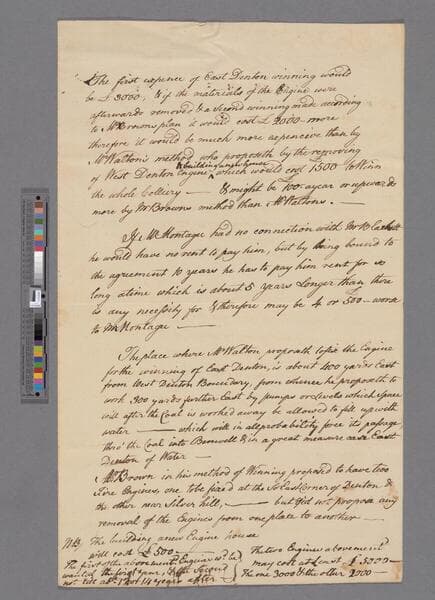 The first expence of East Denton winning would
be £3000, & if the materials of the Engine were
afterwards removed & a second winning made according
to Mr Browns plan it would cost £2000 more
therefore it would be much more expencive than by
Mr Walton's method who proposeth by the removing
& building a new house
of West Denton Engine, which would cost 1500 to Winn
the whole Colliery — & might be 100 a year or upwards
more by Mr Browns method than Mr Waltons. —
If Mr Montage had no connection with Mr
he would have no rent to pay him, but by being bound to
the agreement 10 years he has to pay him rent for so
long a time which is about 5 years Longer than there
is any necessity for & therefore may be 4 or 500 — worse
to Mr Montage —
The place where Mr Walton proposeth to fix the Engine
for the winning of East Denton, is about 400 yards East
from West Denton Boundary, from whence he proposeth to
work 300 yards further East by pumps or levels which space
will after the Coal is worked away be allowed to fill up with
water — which will in all probability force its passage
thro' the Coal into Benwell & in a great measure East
Denton of Water —
Mr Brown in his method of Winning proposed to have two
Fire Engines, one to be fixed at the So. East Corner of Denton &
the other near Silver hill, — but did not propose any
removal of the Engines from one place to another —
NB, The building a new Engine house
will cost £500 —
The first of the abovement. Engines w'd be
wanted the first year, & the Second
not till ab.t 12 or 14 years after
The two Engines abovement
may cost at Least £5000 —
The one 3000 & the other 2000 —